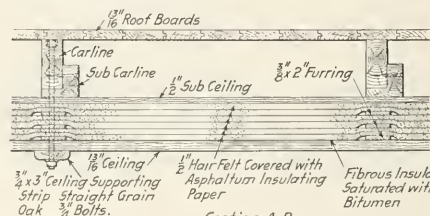 13/16" Roof Boards
Carline
Sub Carline
1/2" Sub Ceiling
3/8" x 2" Furring
13/16" Ceiling
3/4" x 3" Ceiling Supporting
Strip Straight Grain
Oak 3/4" Bolts.
1/2" Hair Felt Covered with
Asphaltum Insulating
Paper
Fibrous Insula
Saturated with
Bitumen